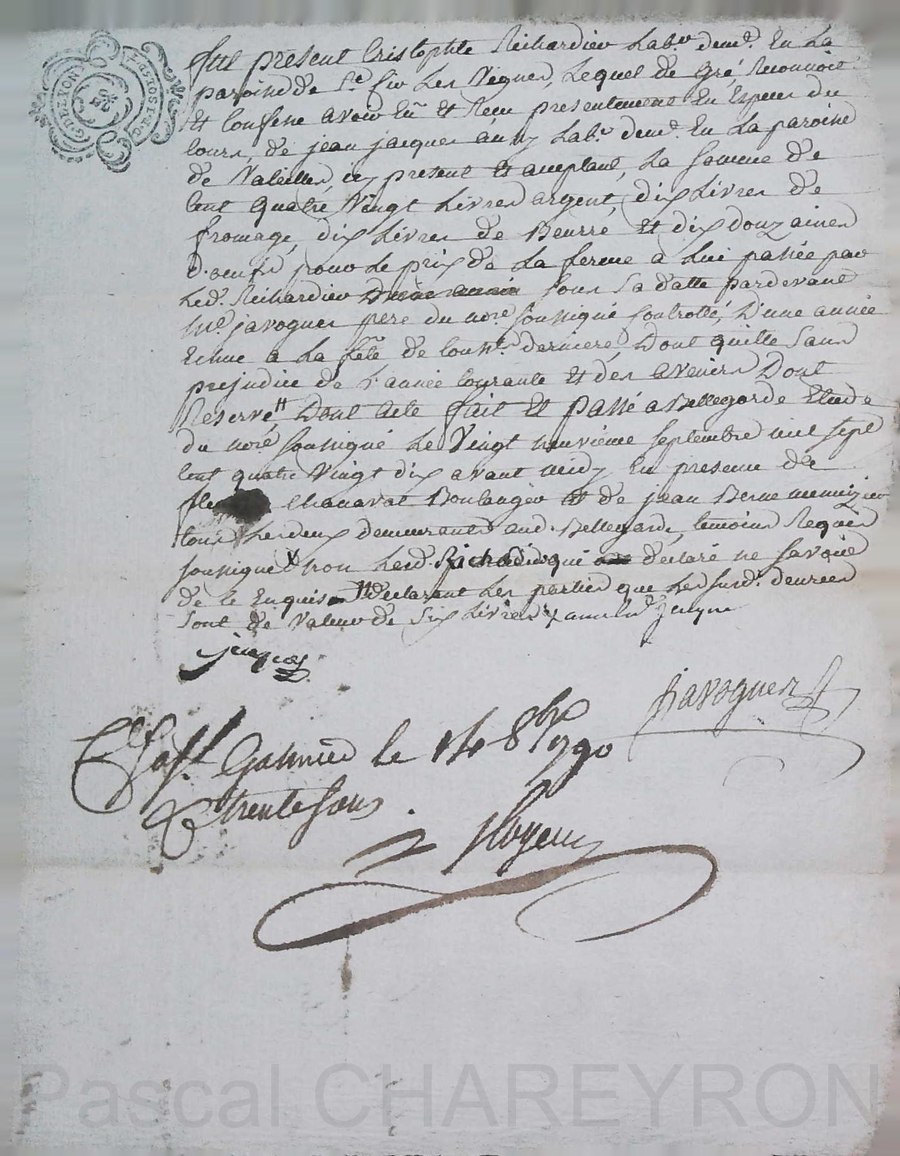 GDE LYON
2S
Fut présent Cristophle Richardier Lab.r dem.t En La
paroisse de St. Les Vignes, Lequel de Gré, Reconnoit
Et Confesse avoir Eu Et Recu presentement En Especes du
Cours, de jean jacques Lab.r dem.t En La paroisse
de Valeilles, icy present Et acceptant, La Somme de
Cent quatre Vingt Livres argent, dix Livres de
fromage, dix Livres de Beurre Et dix douzaines
d'oeufs pour Le prix de La ferme à Lui passée par
Led. Richardier sous Sa datte pardevant
M.e javogues pere du no.re soussigné Controllé, D'une année
Echue a La fête de dernière, Dont quitte Sans
prejudice de L'année Courante Et des avenirs Dont
Reserve Dont Acte fait Et passé a Bellegarde Etude
du no.re soussigné Le Vingt neuvième septembre mil sept
Cent quatre Vingt dix avant midy En presence de
Chanavat Boulanger et de jean Berne menuizier
tous Les deux demeurants aud. Bellegarde, temoins Requis
soussignés non Led. Richardier qui a declaré ne Savoir
de ce Enquis declarant Les parties que Les susd. denrées
Sont de Valeur de Six Livres
javogues
C.lé à St. Galmier le 14 8bre 1790
R trente sous.
Pascal CHAREYRON